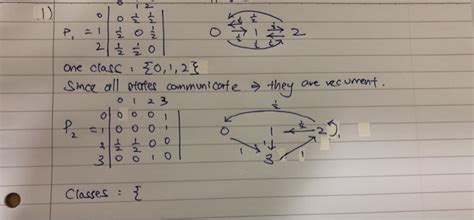 1)
0 1 2
0 | 0 ½ ½ |
P₁ = 1 | ½ 0 ½ |
2 | ½ ½ 0 |
0 1 2
½ ½ ½ ½ ½ ½
one class : {0,1,2}
Since all states communicate ⇒ they are recurrent.
0 1 2 3
0 | 0 0 0 1 |
P₂ = 1 | 0 0 0 1 |
2 | ½ ½ 0 0 |
3 | 0 0 1 0 |
½
0 1 ½ 2
1 1 3 1
Classes : {